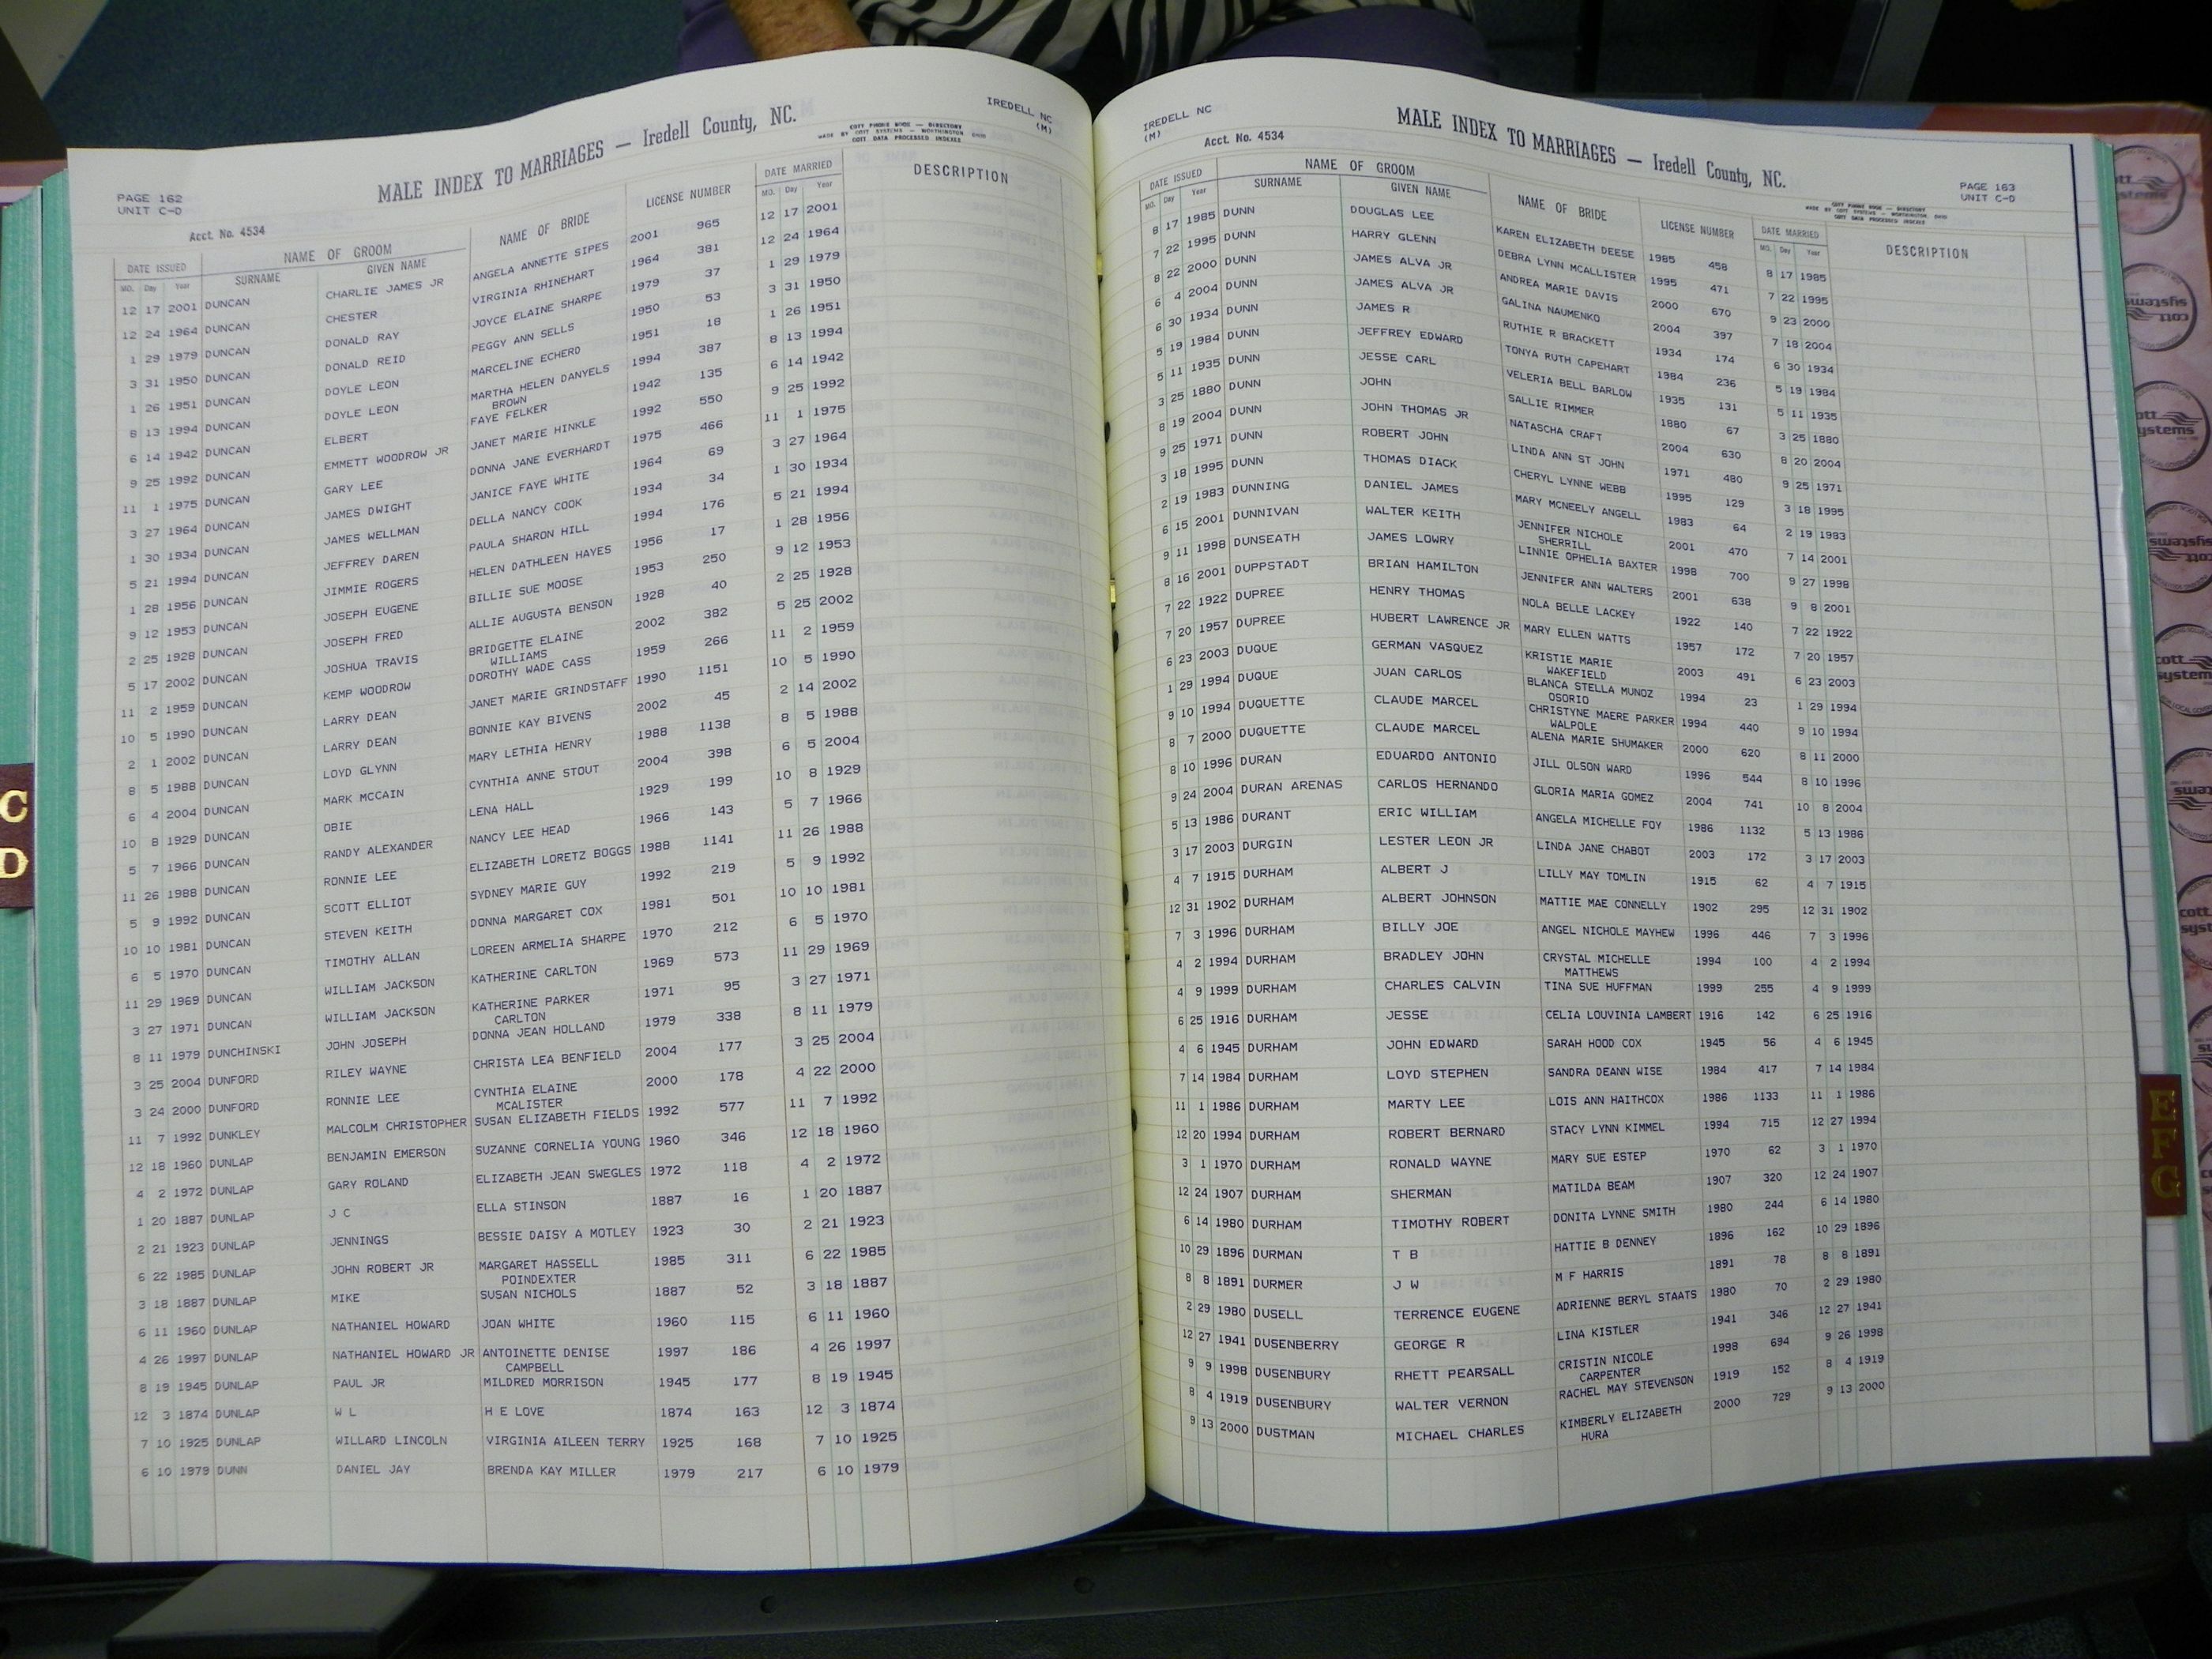 PAGE 162
UNIT C-D
MALE INDEX TO MARRIAGES — Iredell County, NC.
IREDELL NC
(M)
COTT PURDUE BOOK — DIRECTORY
MADE BY COTT SYSTEMS — WORTHINGTON OHIO
COTT DATA PROCESSED INDEXES
Acct. No. 4534
DATE ISSUED NAME OF GROOM NAME OF BRIDE LICENSE NUMBER DATE MARRIED DESCRIPTION
MO. Day Year SURNAME GIVEN NAME MO. Day Year
12 17 2001 DUNCAN CHARLIE JAMES JR ANGELA ANNETTE SIPES 2001 965 12 17 2001
12 24 1964 DUNCAN CHESTER VIRGINIA RHINEHART 1964 381 12 24 1964
1 29 1979 DUNCAN DONALD RAY JOYCE ELAINE SHARPE 1979 37 1 29 1979
3 31 1950 DUNCAN DONALD REID PEGGY ANN SELLS 1950 53 3 31 1950
1 26 1951 DUNCAN DOYLE LEON MARCELINE ECHERD 1951 18 1 26 1951
8 13 1994 DUNCAN DOYLE LEON MARTHA HELEN DANYELS 1994 387 8 13 1994
BROWN
6 14 1942 DUNCAN ELBERT FAYE FELKER 1942 135 6 14 1942
9 25 1992 DUNCAN EMMETT WOODROW JR JANET MARIE HINKLE 1992 550 9 25 1992
11 1 1975 DUNCAN GARY LEE DONNA JANE EVERHARDT 1975 466 11 1 1975
3 27 1964 DUNCAN JAMES DWIGHT JANICE FAYE WHITE 1964 69 3 27 1964
1 30 1934 DUNCAN JAMES WELLMAN DELLA NANCY COOK 1934 34 1 30 1934
5 21 1994 DUNCAN JEFFREY DAREN PAULA SHARON HILL 1994 176 5 21 1994
1 28 1956 DUNCAN JIMMIE ROGERS HELEN DATHLEEN HAYES 1956 17 1 28 1956
9 12 1953 DUNCAN JOSEPH EUGENE BILLIE SUE MOOSE 1953 250 9 12 1953
2 25 1928 DUNCAN JOSEPH FRED ALLIE AUGUSTA BENSON 1928 40 2 25 1928
5 17 2002 DUNCAN JOSHUA TRAVIS BRIDGETTE ELAINE 2002 382 5 25 2002
WILLIAMS
11 2 1959 DUNCAN KEMP WOODROW DOROTHY WADE CASS 1959 266 11 2 1959
10 5 1990 DUNCAN LARRY DEAN JANET MARIE GRINDSTAFF 1990 1151 10 5 1990
2 1 2002 DUNCAN LARRY DEAN BONNIE KAY BIVENS 2002 45 2 14 2002
8 5 1988 DUNCAN LOYD GLYNN MARY LETHIA HENRY 1988 1138 8 5 1988
6 4 2004 DUNCAN MARK MCCAIN CYNTHIA ANNE STOUT 2004 398 6 5 2004
10 8 1929 DUNCAN OBIE LENA HALL 1929 199 10 8 1929
5 7 1966 DUNCAN RANDY ALEXANDER NANCY LEE HEAD 1966 143 5 7 1966
11 26 1988 DUNCAN RONNIE LEE ELIZABETH LORETZ BOGGS 1988 1141 11 26 1988
5 9 1992 DUNCAN SCOTT ELLIOT SYDNEY MARIE GUY 1992 219 5 9 1992
10 10 1981 DUNCAN STEVEN KEITH DONNA MARGARET COX 1981 501 10 10 1981
6 5 1970 DUNCAN TIMOTHY ALLAN LOREEN ARMELIA SHARPE 1970 212 6 5 1970
11 29 1969 DUNCAN WILLIAM JACKSON KATHERINE CARLTON 1969 573 11 29 1969
3 27 1971 DUNCAN WILLIAM JACKSON KATHERINE PARKER 1971 95 3 27 1971
CARLTON
8 11 1979 DUNCHINSKI JOHN JOSEPH DONNA JEAN HOLLAND 1979 338 8 11 1979
3 25 2004 DUNFORD RILEY WAYNE CHRISTA LEA BENFIELD 2004 177 3 25 2004
3 24 2000 DUNFORD RONNIE LEE CYNTHIA ELAINE 2000 178 4 22 2000
MCALISTER
11 7 1992 DUNKLEY MALCOLM CHRISTOPHER SUSAN ELIZABETH FIELDS 1992 577 11 7 1992
12 18 1960 DUNLAP BENJAMIN EMERSON SUZANNE CORNELIA YOUNG 1960 346 12 18 1960
4 2 1972 DUNLAP GARY ROLAND ELIZABETH JEAN SWEGLES 1972 118 4 2 1972
1 20 1887 DUNLAP J C ELLA STINSON 1887 16 1 20 1887
2 21 1923 DUNLAP JENNINGS BESSIE DAISY A MOTLEY 1923 30 2 21 1923
6 22 1985 DUNLAP JOHN ROBERT JR MARGARET HASSELL 1985 311 6 22 1985
POINDEXTER
3 18 1887 DUNLAP MIKE SUSAN NICHOLS 1887 52 3 18 1887
6 11 1960 DUNLAP NATHANIEL HOWARD JOAN WHITE 1960 115 6 11 1960
4 26 1997 DUNLAP NATHANIEL HOWARD JR ANTOINETTE DENISE 1997 186 4 26 1997
CAMPBELL
8 19 1945 DUNLAP PAUL JR MILDRED MORRISON 1945 177 8 19 1945
12 3 1874 DUNLAP W L H E LOVE 1874 163 12 3 1874
7 10 1925 DUNLAP WILLARD LINCOLN VIRGINIA AILEEN TERRY 1925 168 7 10 1925
6 10 1979 DUNN DANIEL JAY BRENDA KAY MILLER 1979 217 6 10 1979
IREDELL NC
(M)
Acct. No. 4534
MALE INDEX TO MARRIAGES — Iredell County, NC.
PAGE 163
UNIT C-D
COTT PURDUE BOOK — DIRECTORY
MADE BY COTT SYSTEMS — WORTHINGTON OHIO
COTT DATA PROCESSED INDEXES
DATE ISSUED NAME OF GROOM NAME OF BRIDE LICENSE NUMBER DATE MARRIED DESCRIPTION
MO. Day Year SURNAME GIVEN NAME MO. Day Year
8 17 1985 DUNN DOUGLAS LEE KAREN ELIZABETH DEESE 1985 458 8 17 1985
7 22 1995 DUNN HARRY GLENN DEBRA LYNN MCALLISTER 1995 471 7 22 1995
8 22 2000 DUNN JAMES ALVA JR ANDREA MARIE DAVIS 2000 670 9 23 2000
6 4 2004 DUNN JAMES ALVA JR GALINA NAUMENKO 2004 397 7 18 2004
6 30 1934 DUNN JAMES R RUTHIE R BRACKETT 1934 174 6 30 1934
5 19 1984 DUNN JEFFREY EDWARD TONYA RUTH CAPEHART 1984 236 5 19 1984
5 11 1935 DUNN JESSE CARL VELERIA BELL BARLOW 1935 131 5 11 1935
3 25 1880 DUNN JOHN SALLIE RIMMER 1880 67 3 25 1880
8 19 2004 DUNN JOHN THOMAS JR NATASCHA CRAFT 2004 630 8 20 2004
9 25 1971 DUNN ROBERT JOHN LINDA ANN ST JOHN 1971 480 9 25 1971
3 18 1995 DUNN THOMAS DIACK CHERYL LYNNE WEBB 1995 129 3 18 1995
2 19 1983 DUNNING DANIEL JAMES MARY MCNEELY ANGELL 1983 64 2 19 1983
6 15 2001 DUNNIVAN WALTER KEITH JENNIFER NICHOLE 2001 470 7 14 2001
SHERRILL
9 11 1998 DUNSEATH JAMES LOWRY LINNIE OPHELIA BAXTER 1998 700 9 27 1998
8 16 2001 DUPPSTADT BRIAN HAMILTON JENNIFER ANN WALTERS 2001 638 9 8 2001
7 22 1922 DUPREE HENRY THOMAS NOLA BELLE LACKEY 1922 140 7 22 1922
7 20 1957 DUPREE HUBERT LAWRENCE JR MARY ELLEN WATTS 1957 172 7 20 1957
6 23 2003 DUQUE GERMAN VASQUEZ KRISTIE MARIE 2003 491 6 23 2003
WAKEFIELD
1 29 1994 DUQUE JUAN CARLOS BLANCA STELLA MUNOZ 1994 23 1 29 1994
OSORIO
9 10 1994 DUQUETTE CLAUDE MARCEL CHRISTYNE MAERE PARKER 1994 440 9 10 1994
WALPOLE
8 7 2000 DUQUETTE CLAUDE MARCEL ALENA MARIE SHUMAKER 2000 620 8 11 2000
8 10 1996 DURAN EDUARDO ANTONIO JILL OLSON WARD 1996 544 8 10 1996
9 24 2004 DURAN ARENAS CARLOS HERNANDO GLORIA MARIA GOMEZ 2004 741 10 8 2004
5 13 1986 DURANT ERIC WILLIAM ANGELA MICHELLE FOY 1986 1132 5 13 1986
3 17 2003 DURGIN LESTER LEON JR LINDA JANE CHABOT 2003 172 3 17 2003
4 7 1915 DURHAM ALBERT J LILLY MAY TOMLIN 1915 62 4 7 1915
12 31 1902 DURHAM ALBERT JOHNSON MATTIE MAE CONNELLY 1902 295 12 31 1902
7 3 1996 DURHAM BILLY JOE ANGEL NICHOLE MAYHEW 1996 446 7 3 1996
4 2 1994 DURHAM BRADLEY JOHN CRYSTAL MICHELLE 1994 100 4 2 1994
MATTHEWS
4 9 1999 DURHAM CHARLES CALVIN TINA SUE HUFFMAN 1999 255 4 9 1999
6 25 1916 DURHAM JESSE CELIA LOUVINIA LAMBERT 1916 142 6 25 1916
4 6 1945 DURHAM JOHN EDWARD SARAH HOOD COX 1945 56 4 6 1945
7 14 1984 DURHAM LOYD STEPHEN SANDRA DEANN WISE 1984 417 7 14 1984
11 1 1986 DURHAM MARTY LEE LOIS ANN HAITHCOX 1986 1133 11 1 1986
12 20 1994 DURHAM ROBERT BERNARD STACY LYNN KIMMEL 1994 715 12 27 1994
3 1 1970 DURHAM RONALD WAYNE MARY SUE ESTEP 1970 62 3 1 1970
12 24 1907 DURHAM SHERMAN MATILDA BEAM 1907 320 12 24 1907
6 14 1980 DURHAM TIMOTHY ROBERT DONITA LYNNE SMITH 1980 244 6 14 1980
10 29 1896 DURMAN T B HATTIE B DENNEY 1896 162 10 29 1896
8 8 1891 DURMER J W M F HARRIS 1891 78 8 8 1891
2 29 1980 DUSELL TERRENCE EUGENE ADRIENNE BERYL STAATS 1980 70 2 29 1980
12 27 1941 DUSENBERRY GEORGE R LINA KISTLER 1941 346 12 27 1941
9 9 1998 DUSENBURY RHETT PEARSALL CRISTIN NICOLE 1998 694 9 26 1998
CARPENTER
8 4 1919 DUSENBURY WALTER VERNON RACHEL MAY STEVENSON 1919 152 8 4 1919
9 13 2000 DUSTMAN MICHAEL CHARLES KIMBERLY ELIZABETH 2000 729 9 13 2000
HURA
C
D
E
F
G
cott
systems